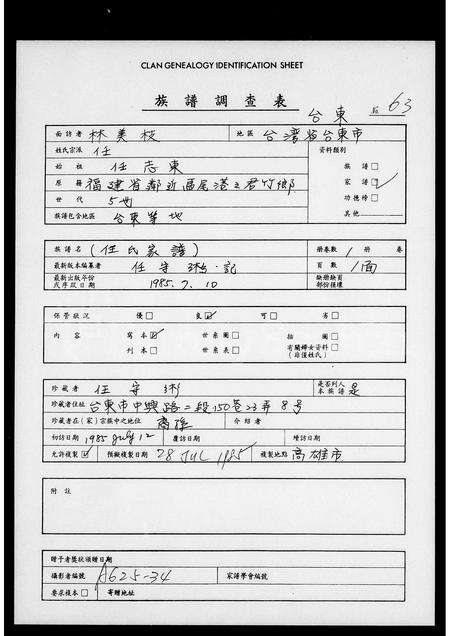 CLAN GENEALOGY IDENTIFICATION SHEET
族譜調查表
台東 № 63
面訪者 林美枝 地區 台灣省台東市
姓氏宗派 任 資料類別
始祖 任志東 族譜□
原籍 福建省鄰近區尾港之君竹鄉 家譜☑
世代 5世 功德榜□
族譜包含地區 台東等地 其他
族譜名 (任氏家譜) 冊卷數 1 冊 卷
最新版本編纂者 任守 記 頁數 1面
最新出版年份或序跋日期 1985.7.10 缺冊缺頁部份損壞
保管狀況 優□ 良☑ 可□ 劣□
內容 寫本☑ 世系圖□ 插圖□
刊本□ 世系表□ 有關婦女資料(非僅姓氏)□
珍藏者 任守 是否列入本族譜 是
珍藏者住址 台東市中興路二段150巷23弄8号
珍藏者在(家)宗族中之地位 裔孫 介紹者
初訪日期 1985 July 12 覆訪日期 續訪日期
允許複製☑ 預擬複製日期 28 JUL 1985 複製地點 高雄市
附註
贈予者獎狀頒贈日期
攝影者編號 A625-34 家譜學會編號
要求複本□ 寄贈地址